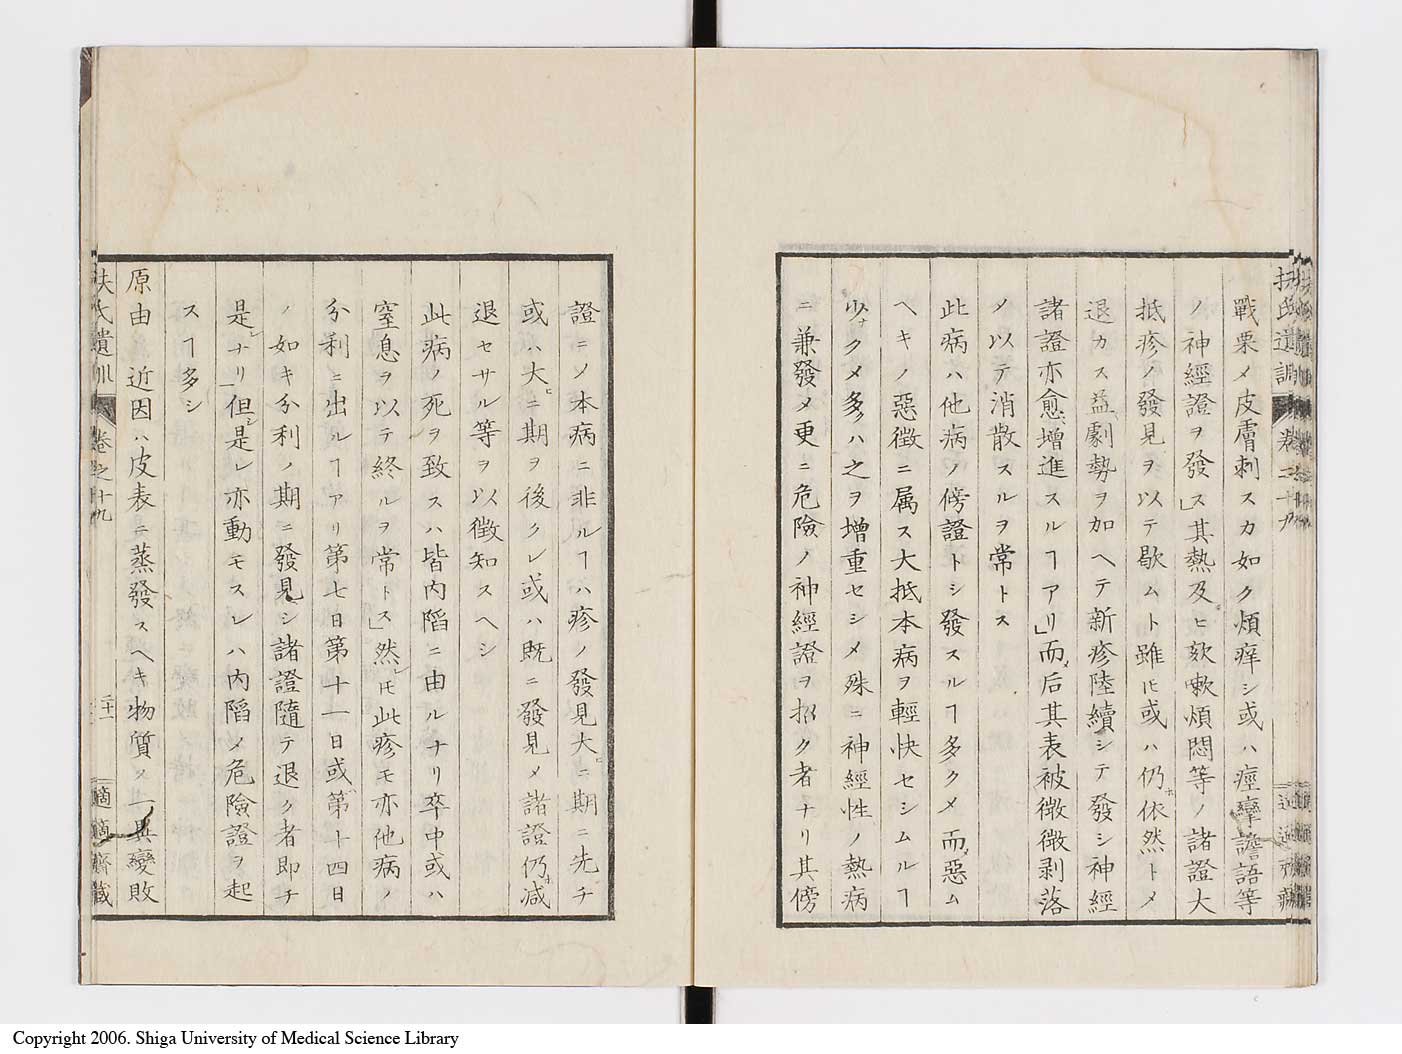 戰栗〆皮膚刺スカ如ク煩痒シ或ハ痙攣譫語等
ノ神經證ヲ發」ス其熱及ヒ欬嗽煩悶等ノ諸證大
抵疹ノ發見ヲ以テ歇ムト雖𪜈或ハ仍ホ依然ト〆
退カス益劇勢ヲ加ヘテ新疹陸續シテ發シ神經
諸證亦愈增進スルヿアリ」而后其表被微微剥落
〆以テ消散スルヲ常トス
此病ハ他病ノ傍證トシ發スルヿ多ク〆而惡ム
ヘキノ惡徴ニ属ス大抵本病ヲ輕快セシムルヿ
少ナク〆多ハ之ヲ增重セシメ殊ニ神經性ノ熱病
ニ兼發〆更ニ危險ノ神經證ヲ招ク者ナリ其傍
證ニ〆本病ニ非ルヿハ疹ノ發見大ニ期ニ先チ
或ハ大ニ期ヲ後クレ或ハ既ニ發見〆諸證仍ホ减
退セサル等ヲ以徴知スヘシ
此病ノ死ヲ致スハ皆内䧟ニ由ルナリ卒中或ハ
窒息ヲ以テ終ルヲ常トス」然レ𪜈此疹モ亦他病ノ
分利ニ出ルヿアリ第七日第十一日或第十四日
ノ如キ分利ノ期ニ發見シ諸證隨テ退ク者即チ
是レナリ」但シ是レ亦動モスレハ内䧟〆危險證ヲ起
スヿ多シ
原由 近因ハ皮表ニ蒸發スヘキ物質ノ一異變敗
扶氏遺訓 卷之十九
二十一
適適齋藏
Copyright 2006. Shiga University of Medical Science Library